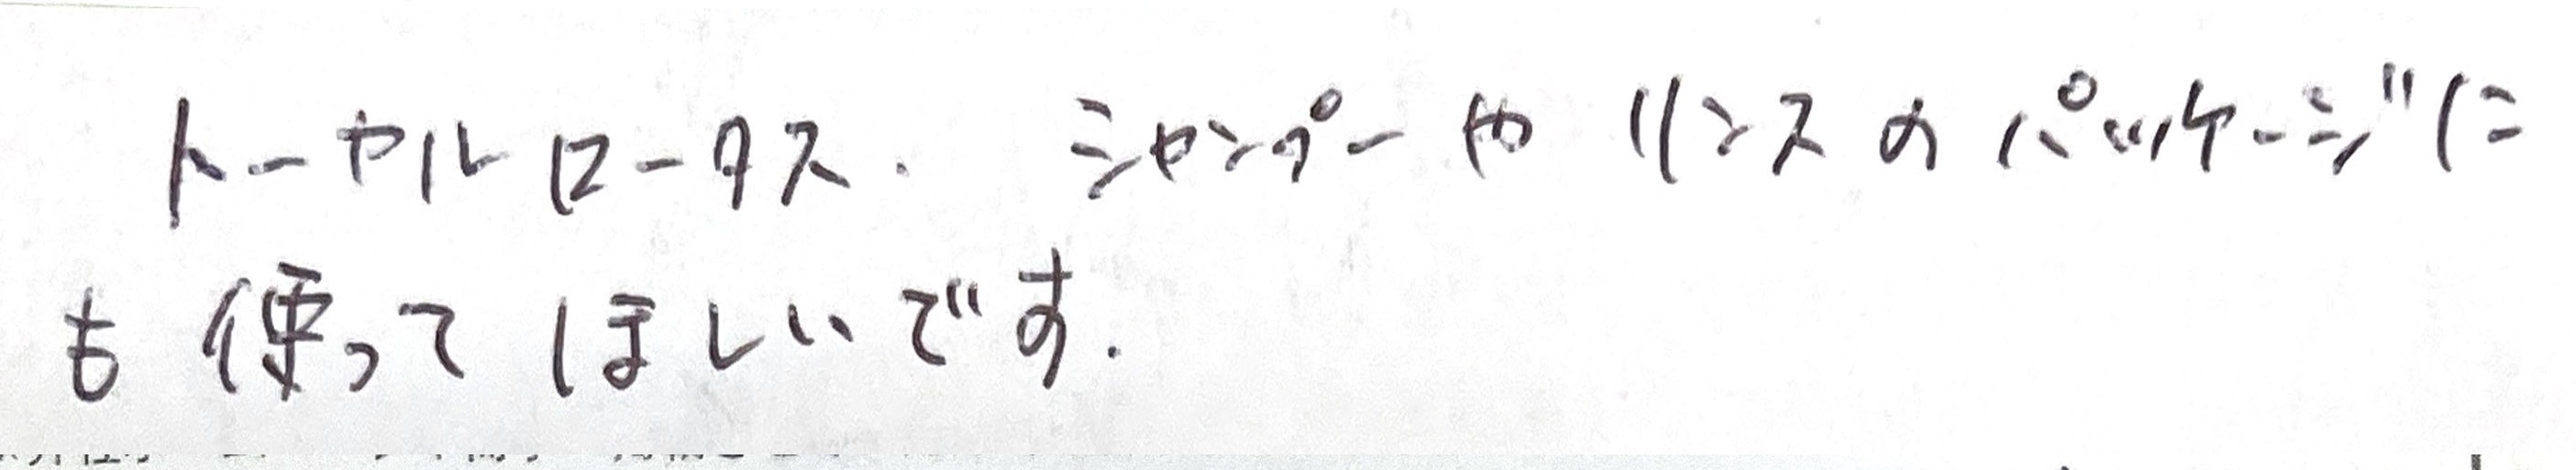 トーヤルロータス. シャンプーや リンスのパッケージに
も使ってほしいです.